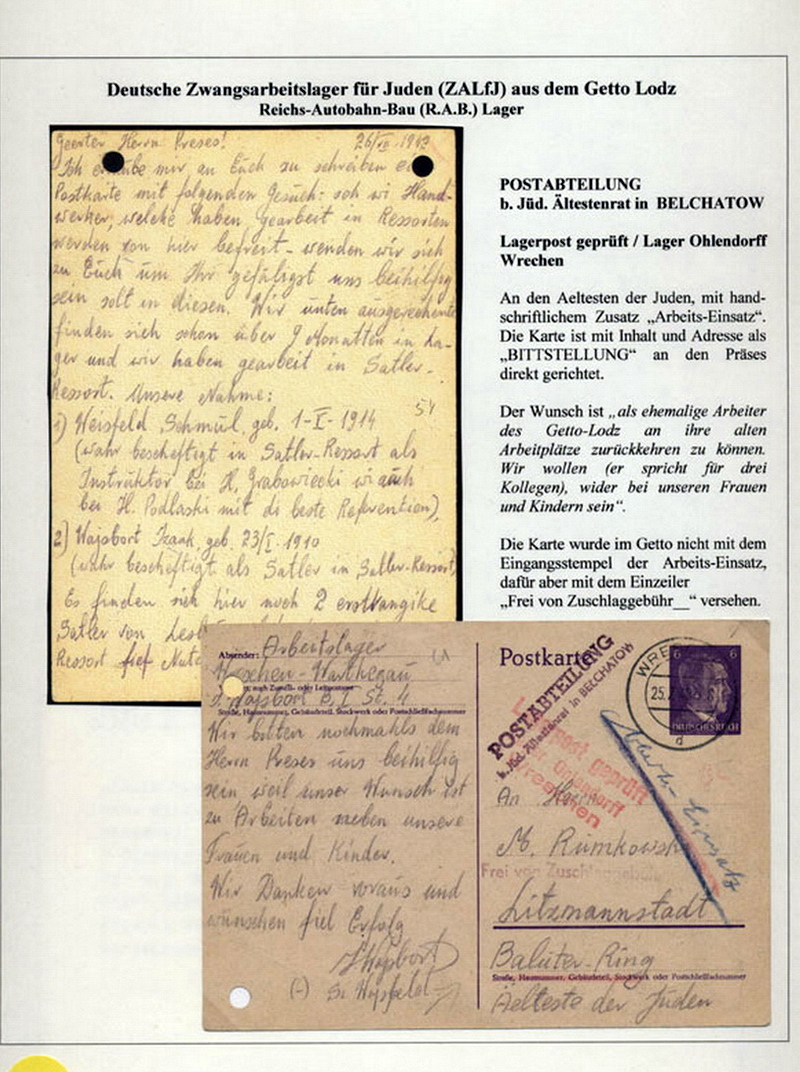 Deutsche Zwangsarbeitslager für Juden (ZALfJ) aus dem Getto Lodz
Reichs-Autobahn-Bau (R.A.B.) Lager
Geerter Herrn Preses! 26/VII 1943
Ich erlaube mir an Euch zu schreiben
Postkarte mit folgenden Gesuch: soh wi Hand-
werker, welche haben gearbeit in Ressorten
werden von hier befreit - wenden wir sich
zu Euch um Ihr gefäligst uns beihilfig
sein solt in diesen. Wir unten ausgerechente
finden sich schon über 9 Monatten in La-
ger und wir haben gearbeit in Satler-
Ressort. Unsere Nahme:
54
1) Weisfeld Schmul, geb. 1-V-1914
(wahr bescheftigt in Satler-Ressort als
Instruktor bei H. Grabowiecki wi auch
bei H. Podlaski mit di beste Referention),
2) Wajsbort Izaak, geb. 23/I-1910
(wahr bescheftigt als Satler in Satler-Ressort)
Es finden sich hier noch 2 erstrangike
Satler von
Ressort
POSTABTEILUNG
b. Jüd. Ältestenrat in BELCHATOW
Lagerpost geprüft / Lager Ohlendorff
Wrechen
An den Aeltesten der Juden, mit hand-
schriftlichem Zusatz „Arbeits-Einsatz“.
Die Karte ist mit Inhalt und Adresse als
„BITTSTELLUNG“ an den Präses
direkt gerichtet.
Der Wunsch ist „als ehemalige Arbeiter
des Getto-Lodz an ihre alten
Arbeitplätze zurückkehren zu können.
Wir wollen (er spricht für drei
Kollegen), wider bei unseren Frauen
und Kindern sein“.
Die Karte wurde im Getto nicht mit dem
Eingangsstempel der Arbeits-Einsatz,
dafür aber mit dem Einzeiler
„Frei von Zuschlaggebühr__“ versehen.
Absender: Arbeitslager
Wreschen-Warthegau
Wajsbort B. I St. 4
Straße, Hausnummer, Gebäudeteil, Stockwerk oder Postschließfachnummer
Wir bitten nochmahls dem
Herrn Preses uns beihilfig
sein weil unser Wunsch ist
zu Arbeiten neben unsere
Frauen und Kinder.
Wir Danken voraus und
wünschen fiel Erfolg
Wajsbort
(-) Weisfeld
Postkarte
POSTABTEILUNG
b. Jüd. Ältestenrat in BELCHATOW
Lagerpost geprüft
Ohlendorff
Wreschen
WRE
25.7
d
6 6
DEUTSCHES REICH
Arbeits-Einsatz
An Herrn
M. Rumkowski
Frei von Zuschlaggebühr
Litzmannstadt
Baluter-Ring
Straße, Hausnummer, Gebäudeteil, Stockwerk oder Postschließfachnummer
Aelteste der Juden